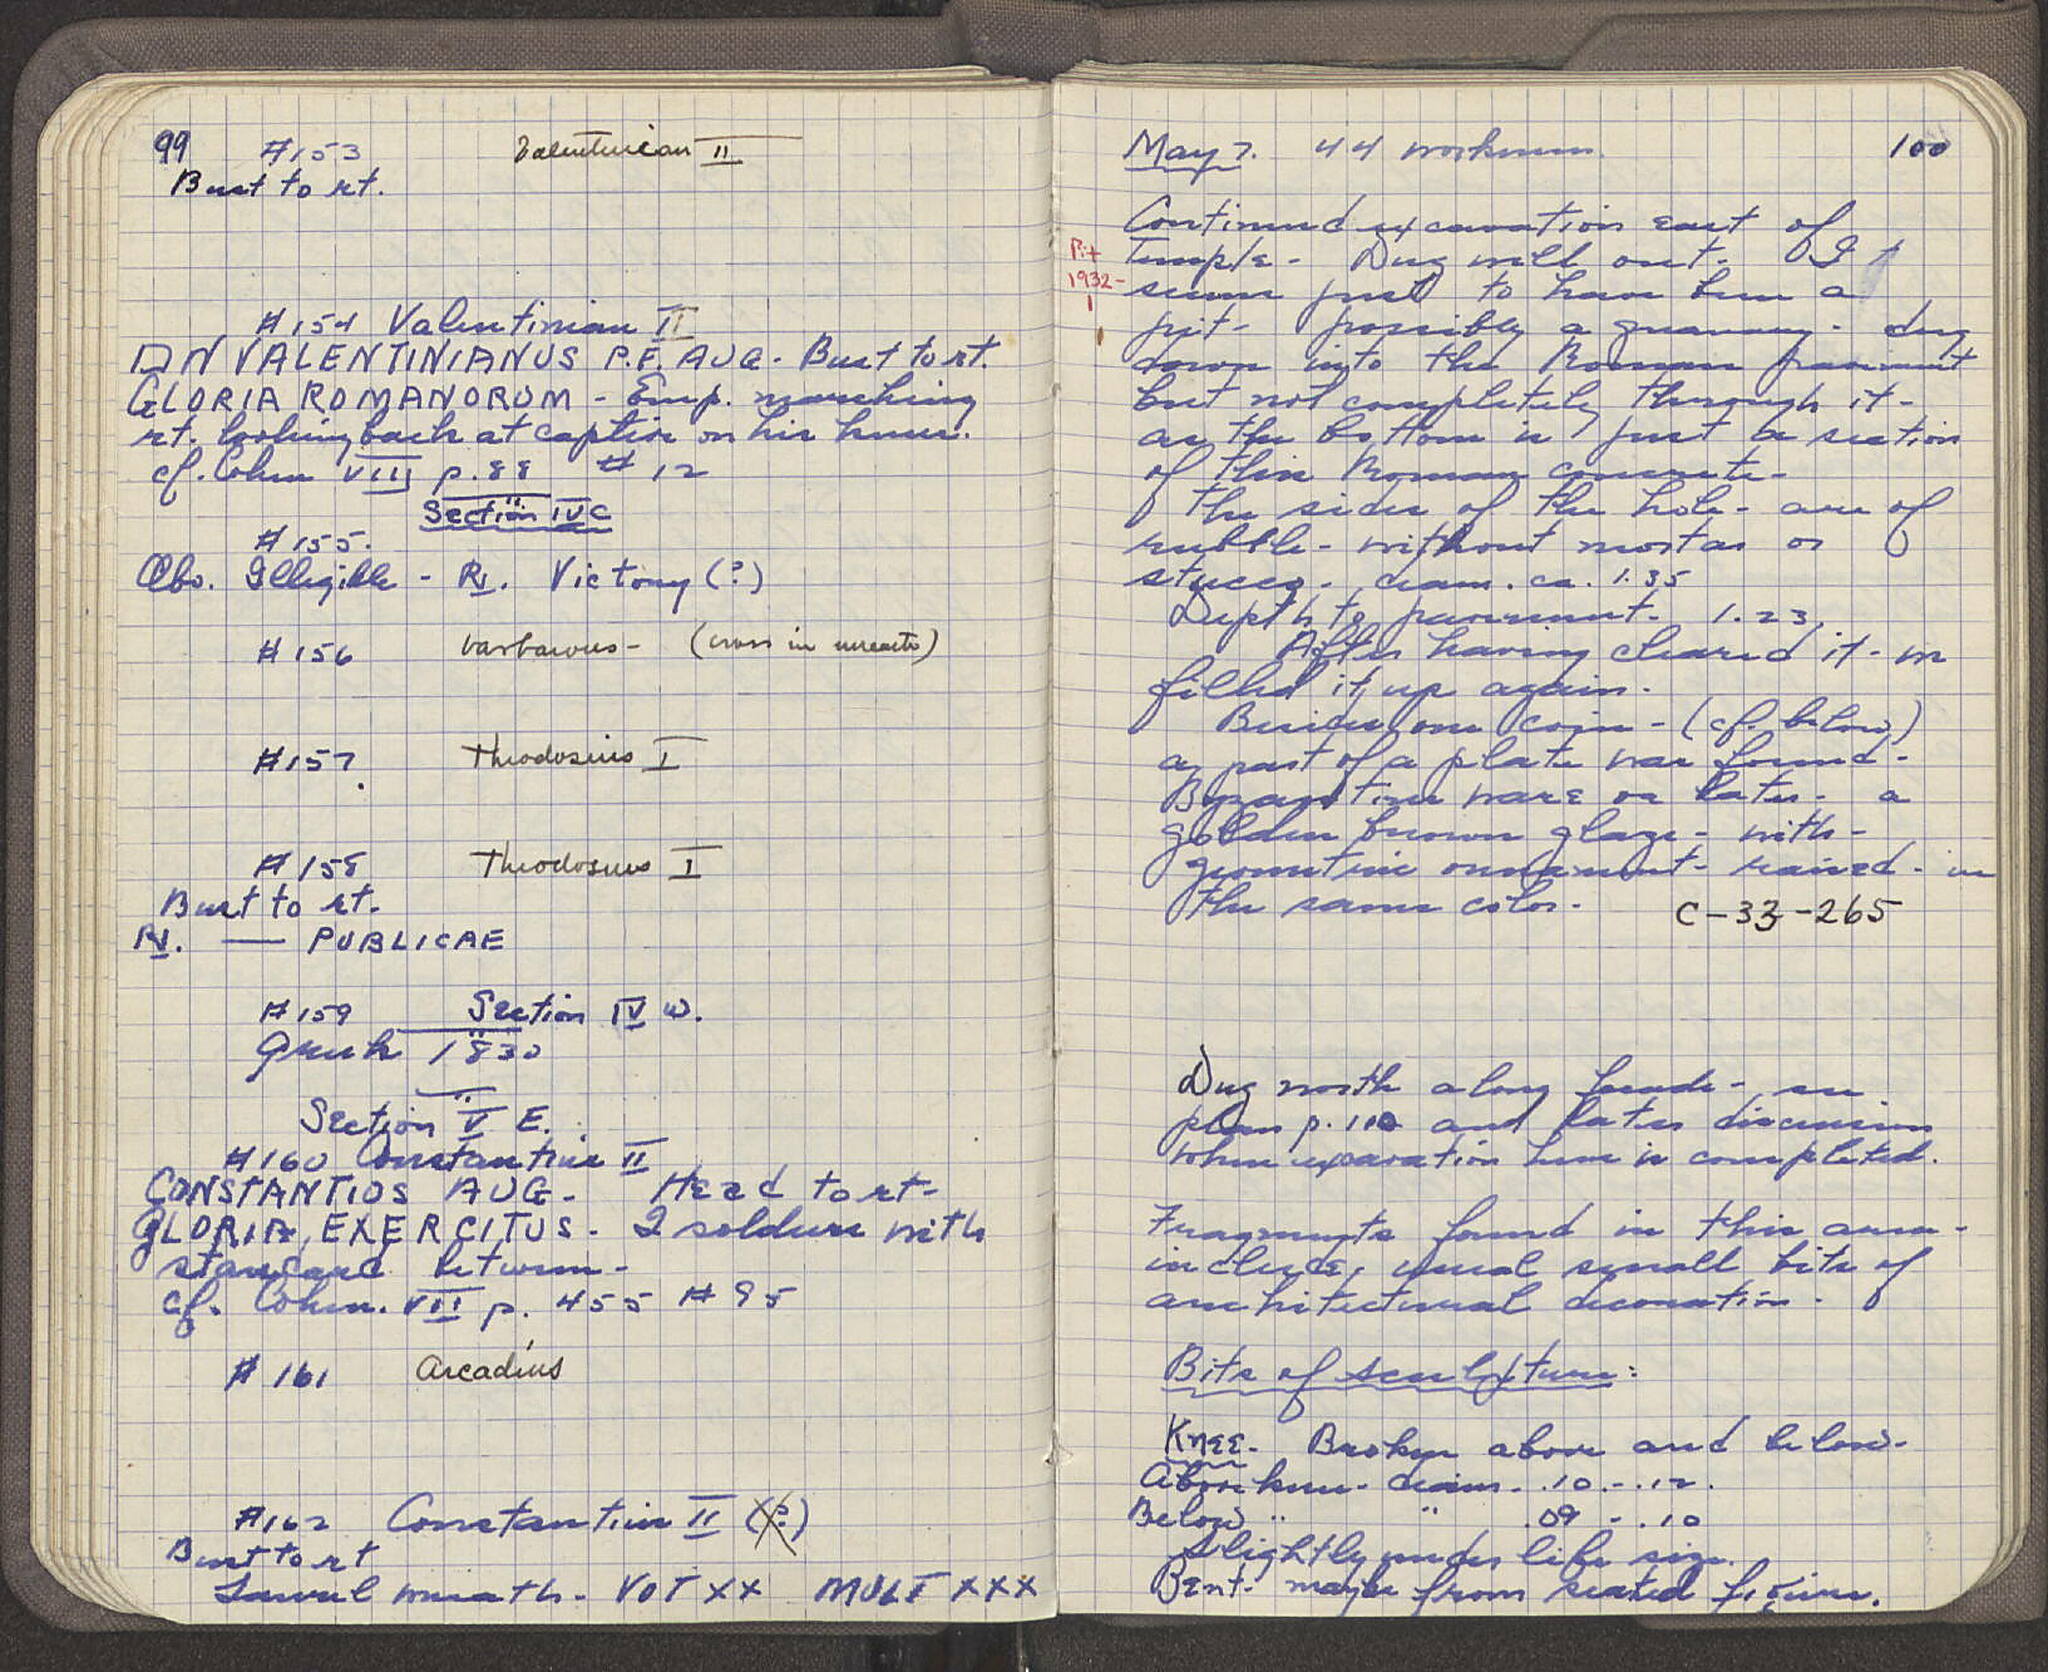 99
#153 Valentinian II
Bust to rt.
#154 Valentinian II
DN VALENTINIANUS P.F. AUG - Bust to rt.
GLORIA ROMANORUM - Emp. marching
rt. looking back at captive on his knees.
cf. Cohen VIII p. 88 #12
Section IV C
#155.
Obv. Illegible - Rv. Victory (?)
#156 barbarous - (cross in wreath)
#157. Theodosius I
#158 Theodosius I
Bust to rt.
Rv. — PUBLICAE
#159 Section IV W.
Greek 1830
Section V E.
#160 Constantius II
CONSTANTIUS AUG - Head to rt -
GLORIA EXERCITUS - 2 soldiers with
standard between -
cf. Cohen. VII p. 455 #95
#161 Arcadius
#162 Constantine II (?)
Bust to rt
Laurel wreath - VOT XX MULT XXX
May 7. 44 workmen. 100
Continued excavation east of
Pit
1932-
1
Temple - Dug well out. It
seems just to have been a
pit - possibly a granary - dug
down into the Roman pavement
but not completely through it -
as the bottom is just a section
of thin Roman concrete -
The sides of the hole - are of
rubble - without mortar or
stucco - diam. ca. 1.35
Depth to pavement - 1.23
After having cleared it - we
filled it up again.
Besides one coin - (cf. below)
a part of a plate was found -
Byzantine ware or later - a
golden brown glaze - with -
geometric ornament - raised - in
the same color. C-33-265
Dug north along facade - see
plan p. 110 and later discussion
when excavation here is completed.
Fragments found in this area -
include, usual small bits of
architectural decoration.
Bits of sculpture:
Knee - Broken above and below -
Above knee - diam. .10 - .12.
Below " " .09 - .10
Slightly under life size.
Bent - maybe from seated figure.